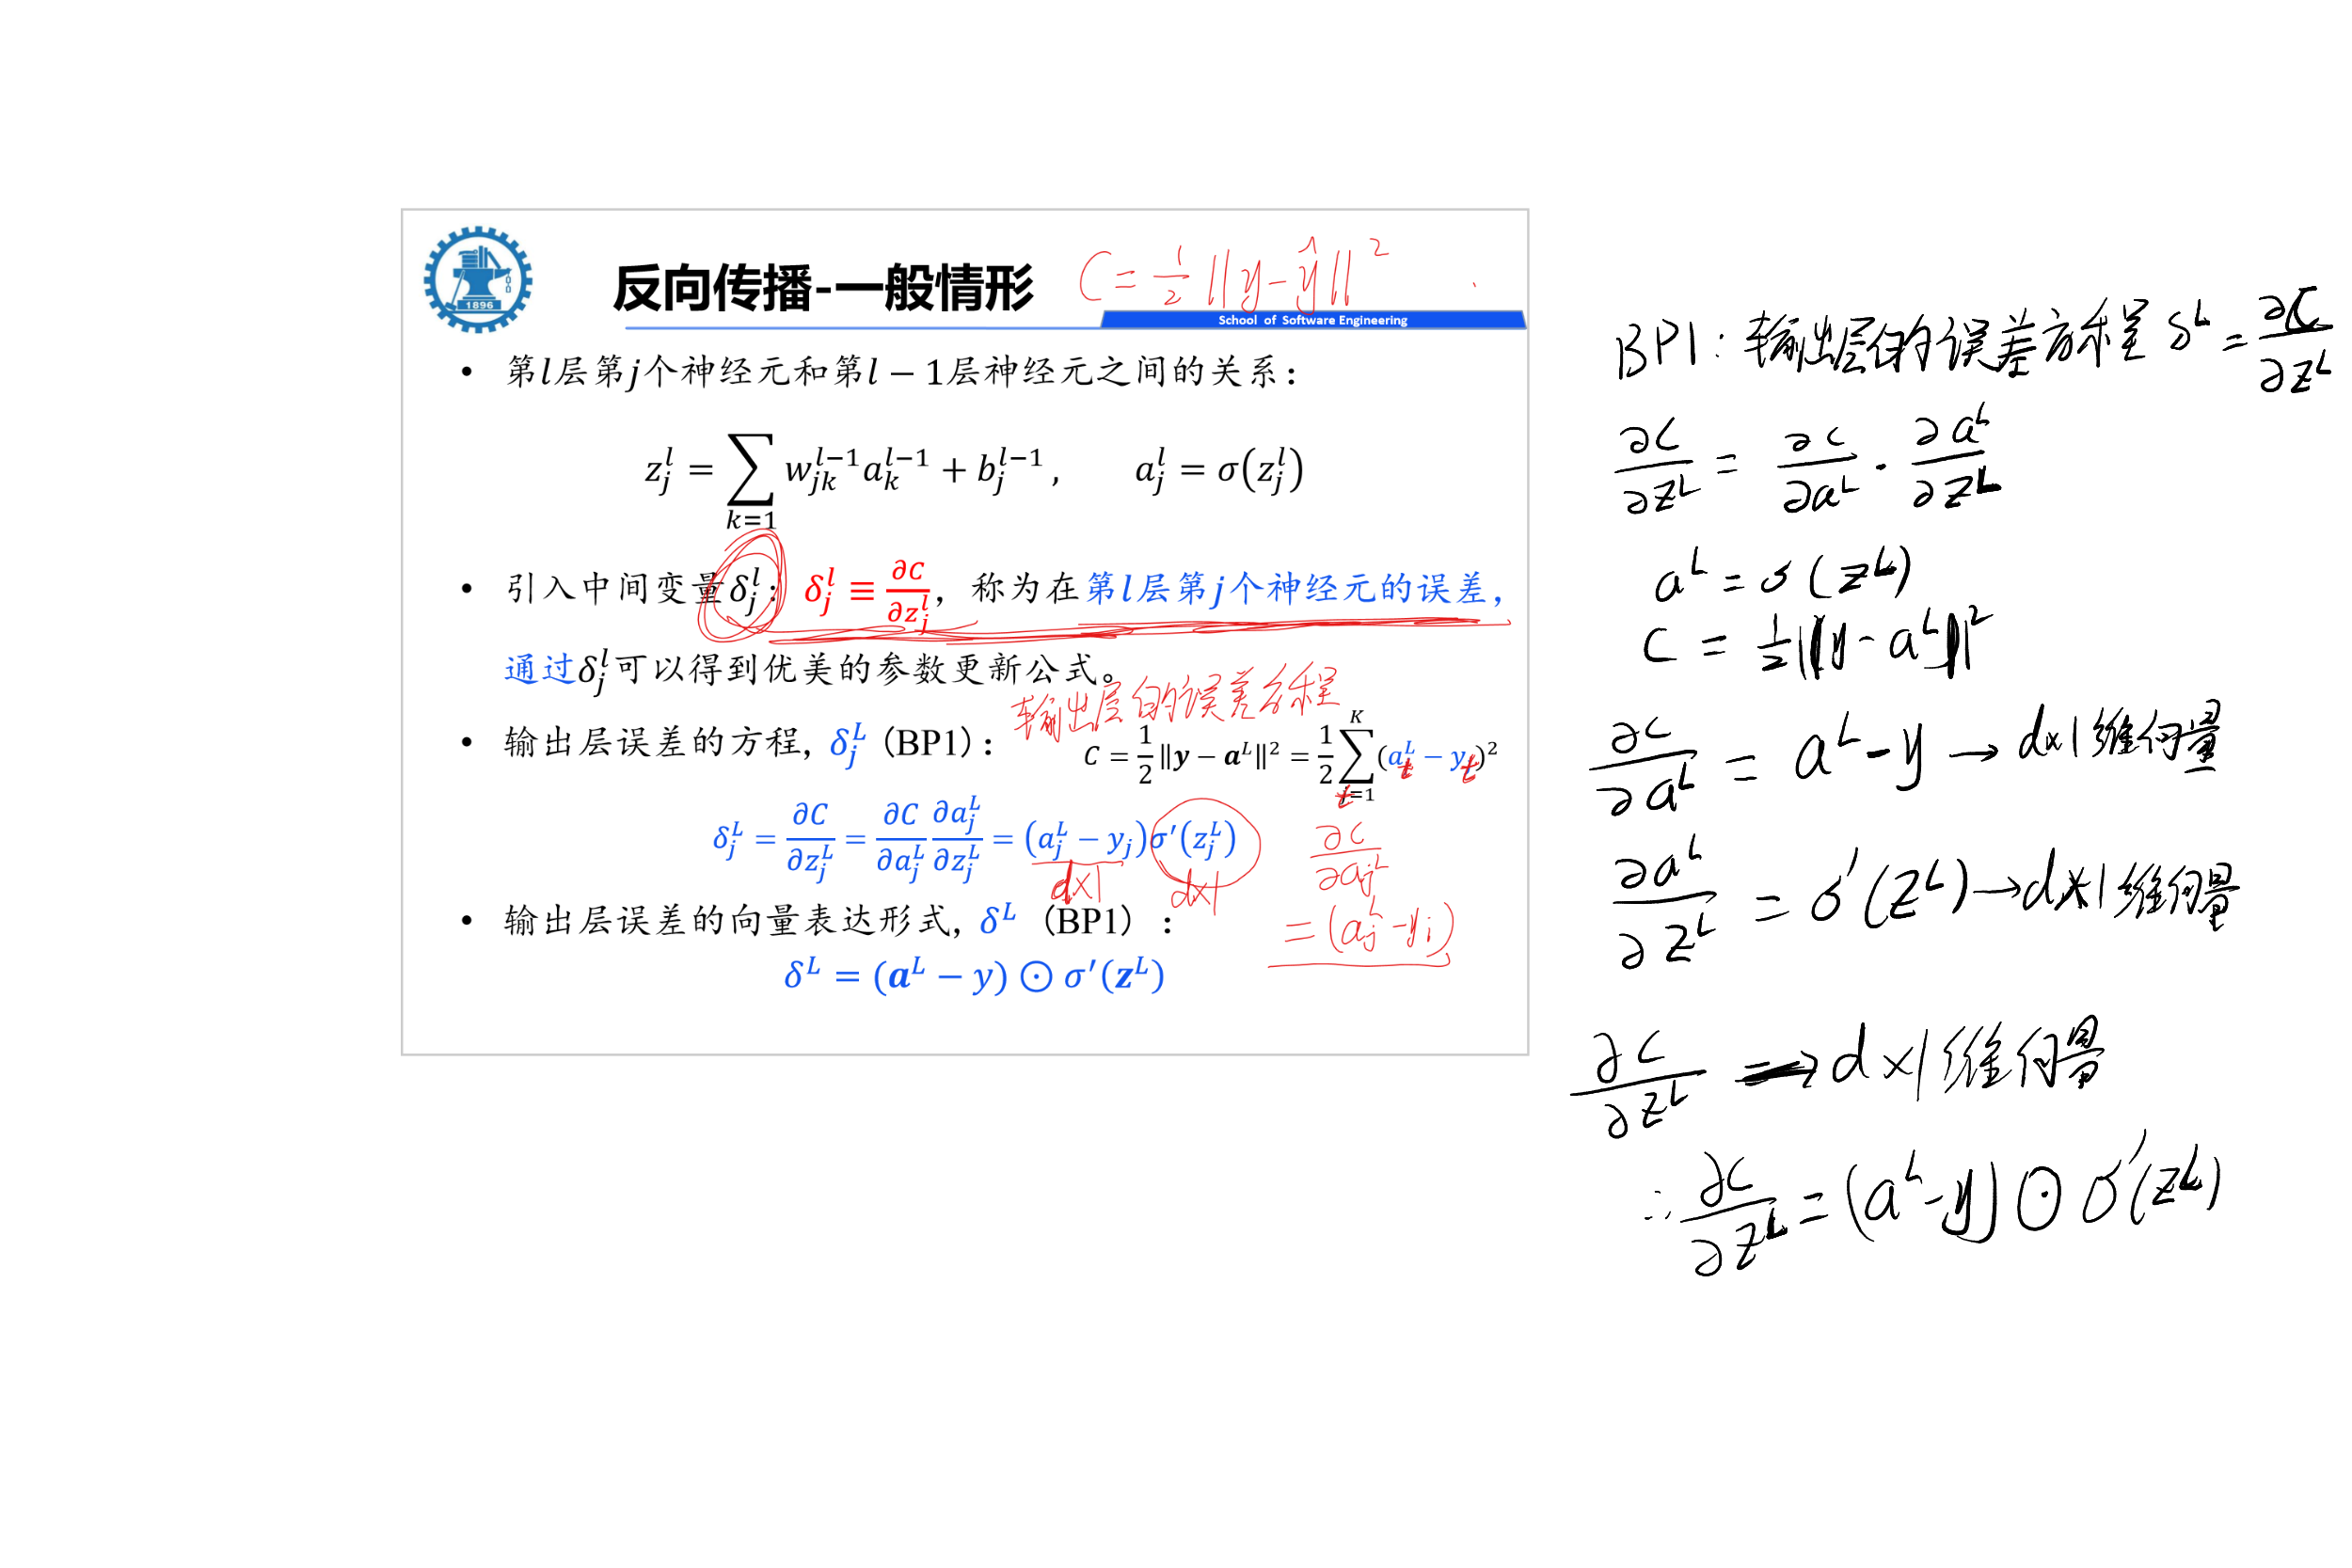 反向传播-一般情形
C = 1/2 ||y - ŷ||²
School of Software Engineering
1896
• 第l层第j个神经元和第l − 1层神经元之间的关系：
z_j^l = ∑_{k=1} w_{jk}^{l−1} a_k^{l−1} + b_j^{l−1} ,  a_j^l = σ(z_j^l)
• 引入中间变量δ_j^l：δ_j^l ≡ ∂C/∂z_j^l，称为在第l层第j个神经元的误差，
通过δ_j^l可以得到优美的参数更新公式。
输出层的误差方程
• 输出层误差的方程, δ_j^L (BP1)：
C = 1/2 ‖y − a^L‖² = 1/2 ∑_{t=1}^{K} (a_t^L − y_t)²
δ_j^L = ∂C/∂z_j^L = ∂C/∂a_j^L ∂a_j^L/∂z_j^L = (a_j^L − y_j)σ′(z_j^L)
d×1 d×1
∂C/∂a_j^L
= (a_j^L - y_j)
• 输出层误差的向量表达形式, δ^L (BP1)：
δ^L = (a^L − y) ⊙ σ′(z^L)
BP1: 输出层的误差方程 δ^L = ∂C/∂z^L
∂C/∂z^L = ∂C/∂a^L · ∂a^L/∂z^L
a^L = σ(z^L)
C = 1/2 ||y - a^L||²
∂C/∂a^L = a^L - y → d×1维向量
∂a^L/∂z^L = σ'(z^L) → d×1维向量
∂C/∂z^L → d×1维向量
∴ ∂C/∂z^L = (a^L - y) ⊙ σ'(z^L)